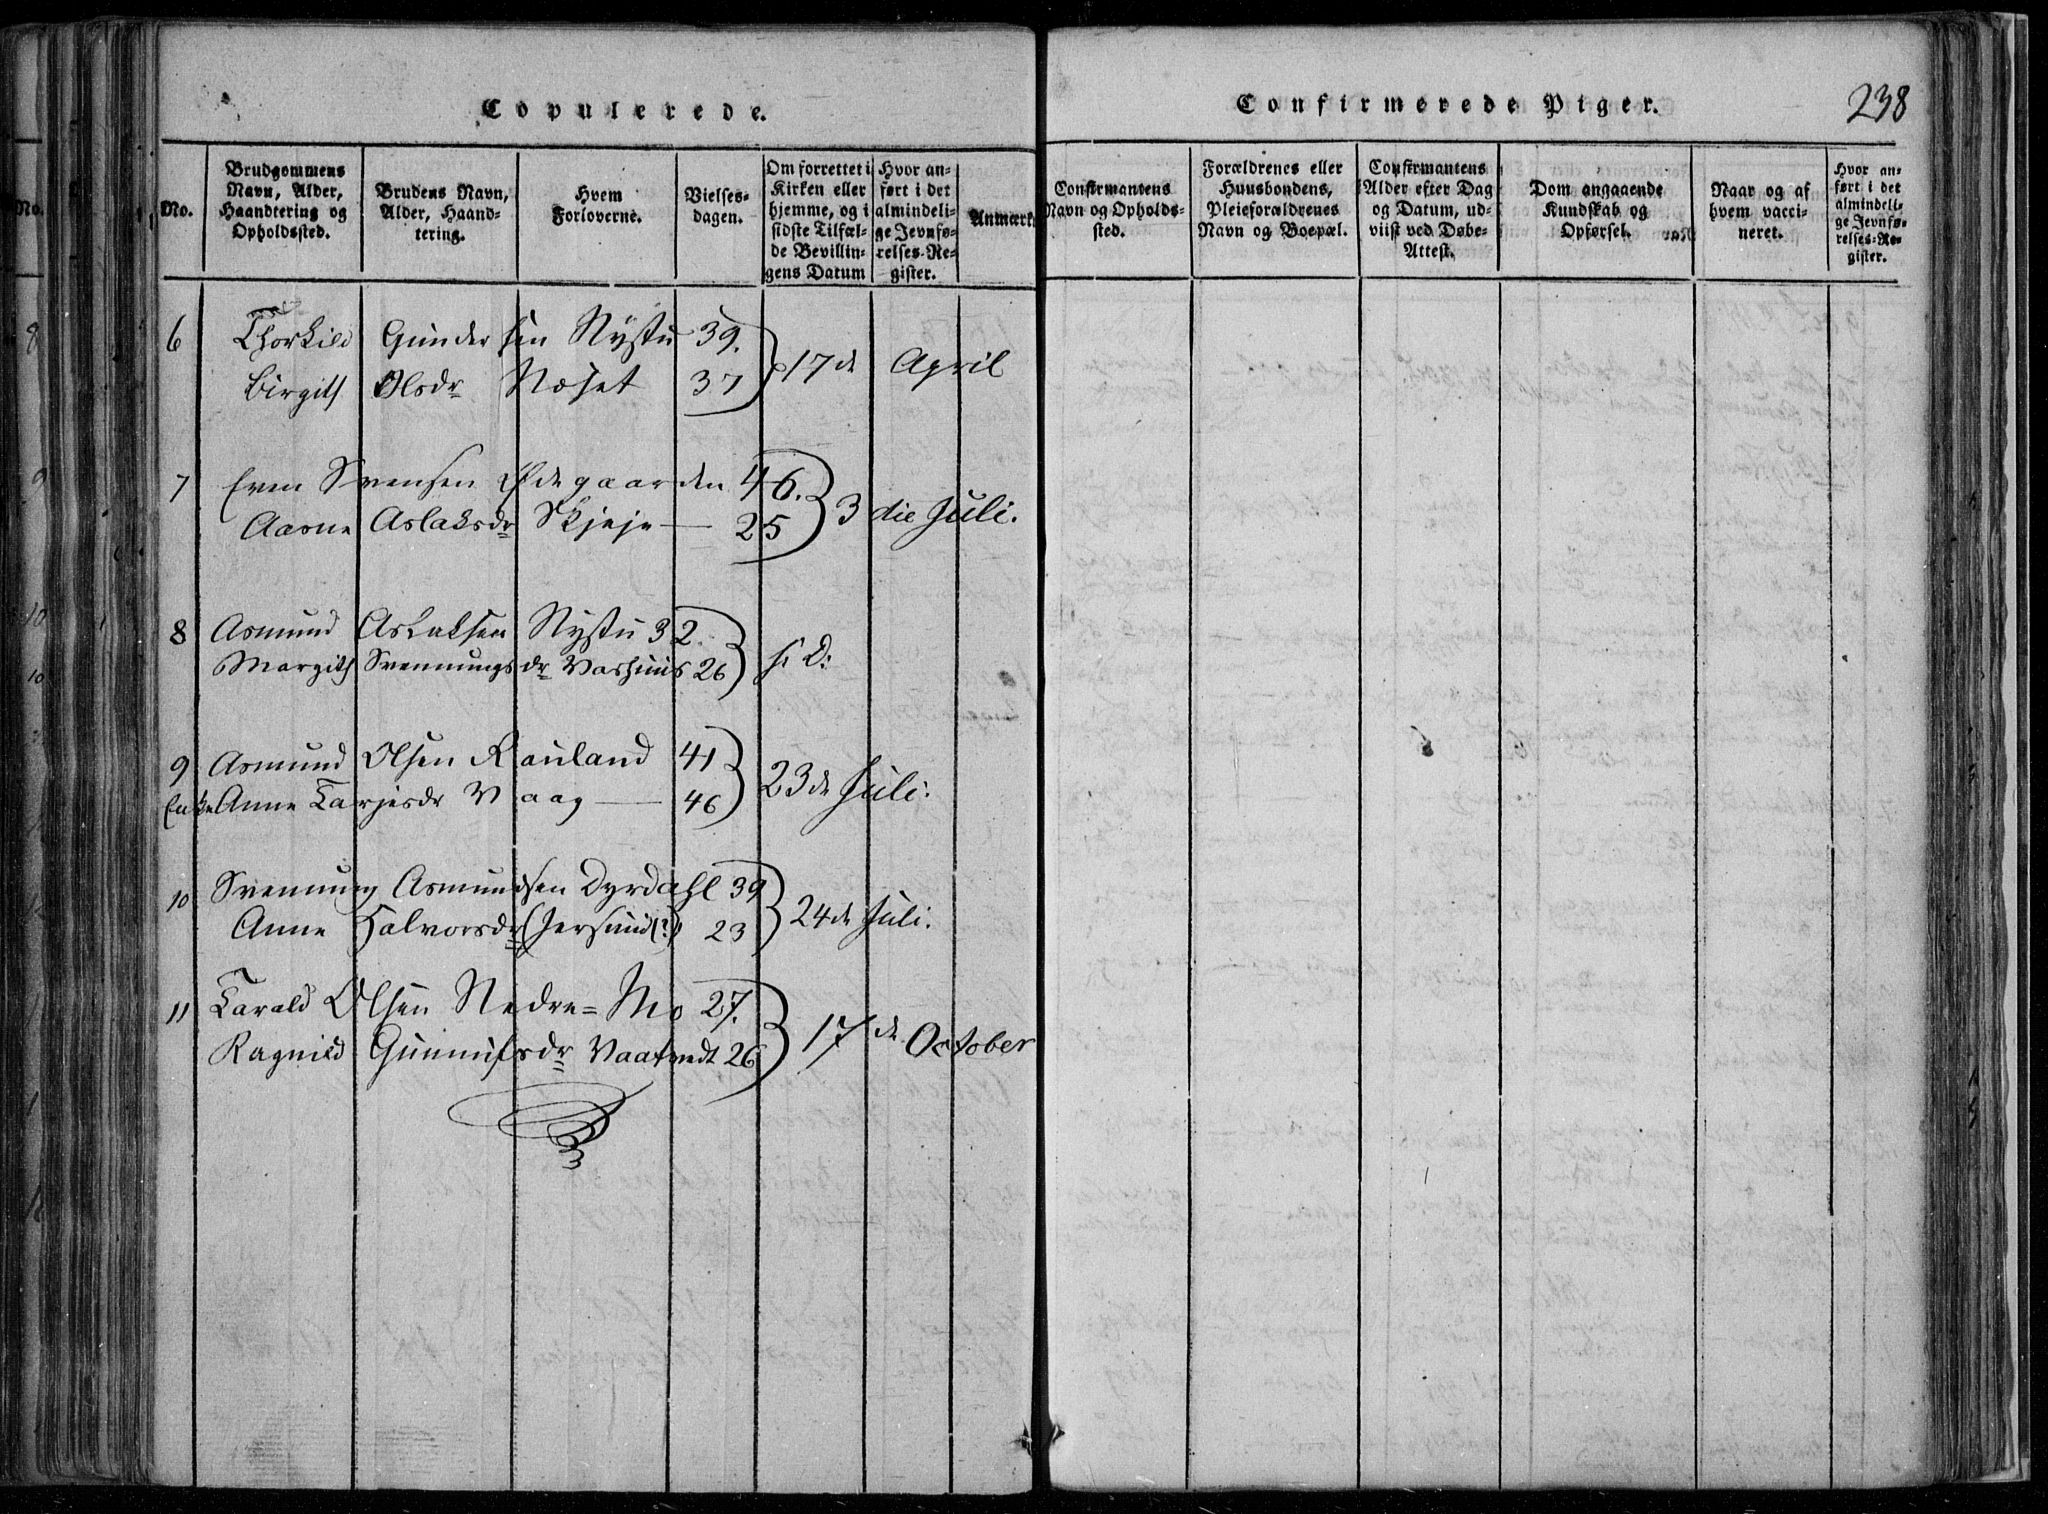 Copulerede.
No.
Brudgommens Navn, Alder, Haandtering og Opholdssted.
Brudens Navn, Alder, Haandtering.
Hvem Forloverne.
Vielsesdagen.
Om forrettet i Kirken eller hjemme, og i sidste Tilfælde Bevillingens Datum
Hvor anført i det almindelige Jevnførelses-Register.
Anmærk
6 Thorkild Gundersen Nystu 39.
Birgith Olsdr Næset 37 } 17de April
7 Even Svensen Ødegaarden 46.
Aasne Aslaksdr Skjeje — 25 } 3die Juli.
8 Asmund Aslaksen Nystu 32.
Margith Svennungsdr Vashuus 26 } s: D:
9 Asmund Olsen Rauland 41
Enke Anne Tarjesdr Vaag — 46 } 23de Juli.
10 Svenung Asmundsen Dyrdahl 39
Anne Halvorsdr (Jersund(?) 23 } 24de Juli.
11 Tarald Olsen Nedre=Mo 27.
Ragnild Gunnulfsdr Vaatvedt 26 } 17de October
Confirmerede Piger.
238
Confirmantens Navn og Opholdssted.
Forældrenes eller Huusbondens, Pleieforældrenes Navn og Boepæl.
Confirmantens Alder efter Dag og Datum, udviist ved Døbe-Attest.
Dom angaaende Kundskab og Opførsel.
Naar og af hvem vaccineret.
Hvor anført i det almindelige Jevnførelses-Register.